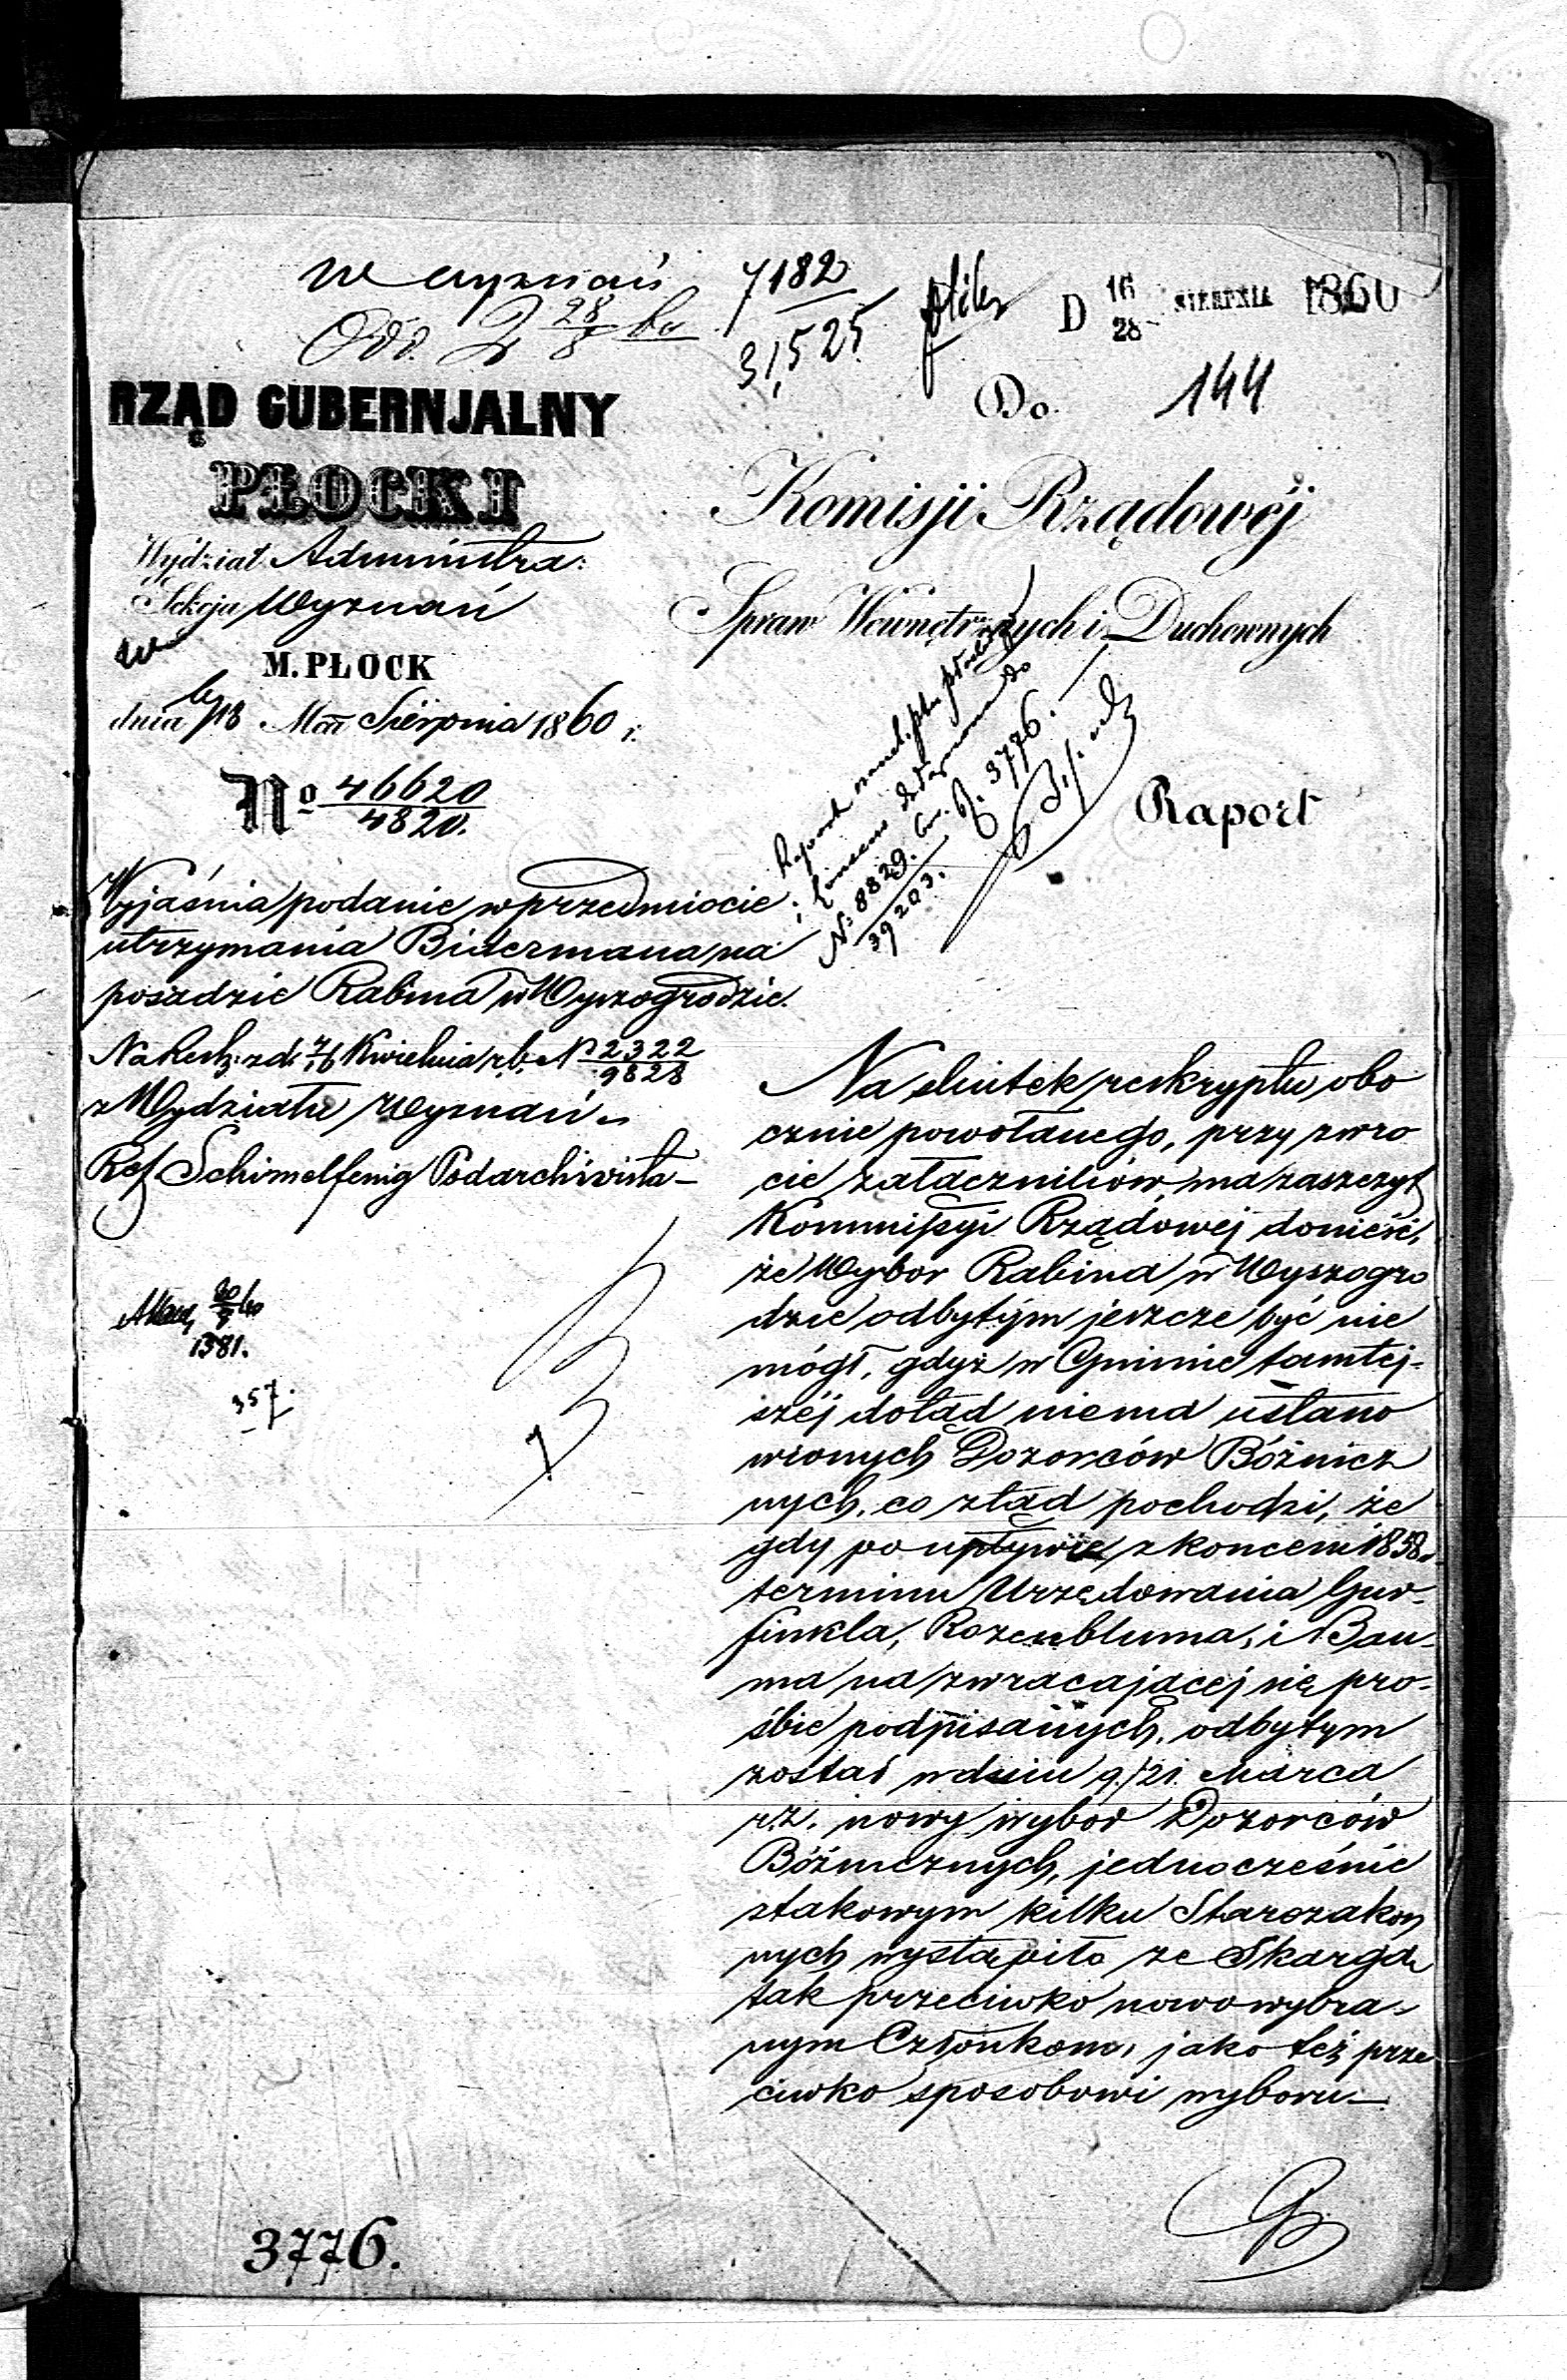 W Wyznań
Odd. 2 28/8 60
7182
31,525
D 16/28 SIERPNIA 1860
144
RZĄD GUBERNJALNY
PŁOCKI
Wydział Administra:
Sekcja Wyznań
M. PŁOCK
dnia 6/18 Mca Sierpnia 1860 r.
No 46620
4820.
Wyjaśnia podanie w przedmiocie
utrzymania Bidermana na
posadzie Rabina w Wyszogrodzie.
Na Resk: z d. 4/16 Kwietnia r.b. N 2322
9828
z Wydziału Wyznań
Ref Schimelfenig Podarchiwista
1381.
357.
Do
Komisji Rządowéj
Spraw Wewnętrznych i Duchownych
Raport
N: 8829.
39203.
3776.
Na skutek reskryptu obo
cznie powołanego, przy zwro
cie załączników, ma zaszczyt
Kommissyi Rządowej donieść,
że Wybor Rabina w Wyszogro
dzie odbytym jeszcze być nie
mógł, gdyż w Gminie tamtej-
széj dotąd niema ustano
wionych Dozorców Bóżnicz
nych, co ztąd pochodzi, że
gdy po upływie z koncem 1858 r.
terminu Urzędowania Gur-
finkla, Rozenbluma, i Bau-
ma na zwracającej się pro-
śbie podpisanych, odbytym
został w dniu 9/21. Marca
r.z. nowy wybor Dozorców
Bóżnicznych, jednocześnie
z takowym kilku Starozakon
nych wystąpiło ze Skargą
tak przeciwko nowo wybra-
nym Członkom, jako też prze
ciwko sposobowi wyboru
3776.